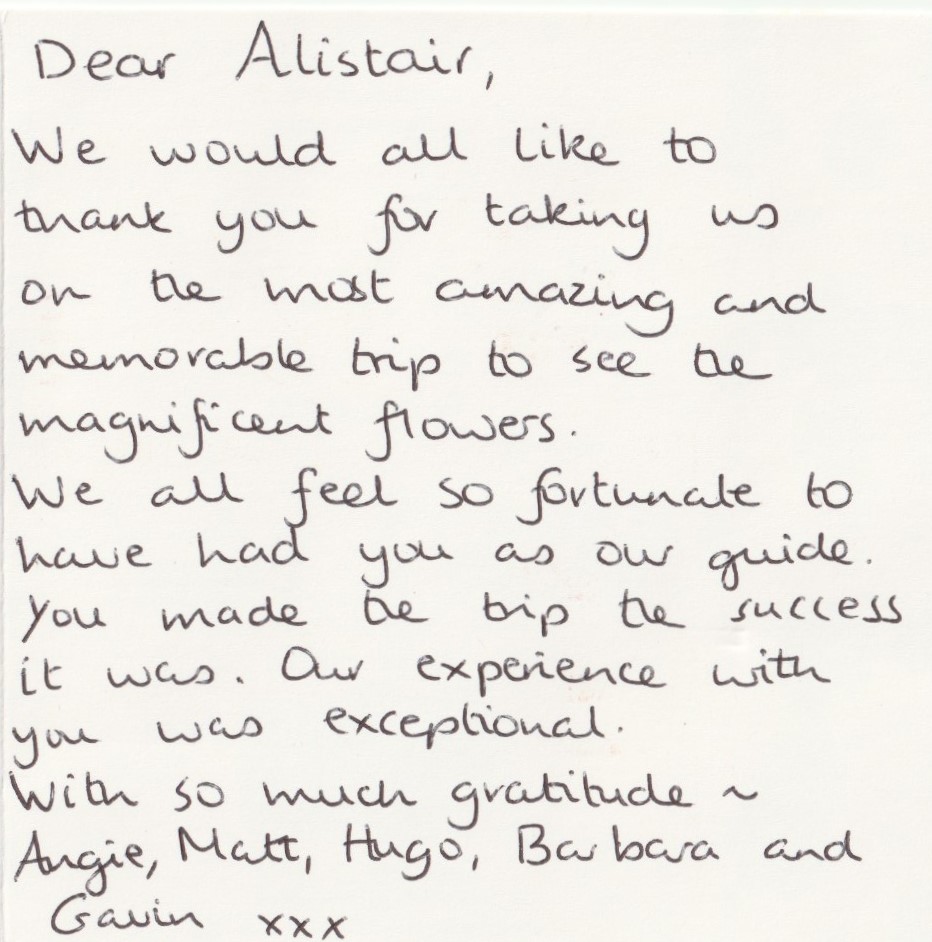 Dear Alistair,
We would all like to
thank you for taking us
on the most amazing and
memorable trip to see the
magnificent flowers.
We all feel so fortunate to
have had you as our guide.
You made the trip the success
it was. Our experience with
you was exceptional.
With so much gratitude ~
Angie, Matt, Hugo, Barbara and
Gavin xxx